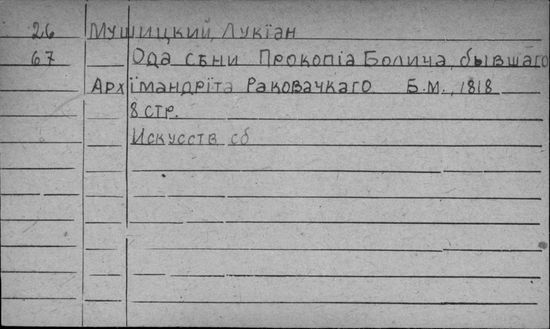 26 Мушицкий, Лукїан
67 Ода сѣни Прокопїа Болича, бывшаго
Архїмандрїта Раковачкаго Б.М., 1818
8 стр.
Искусств сб